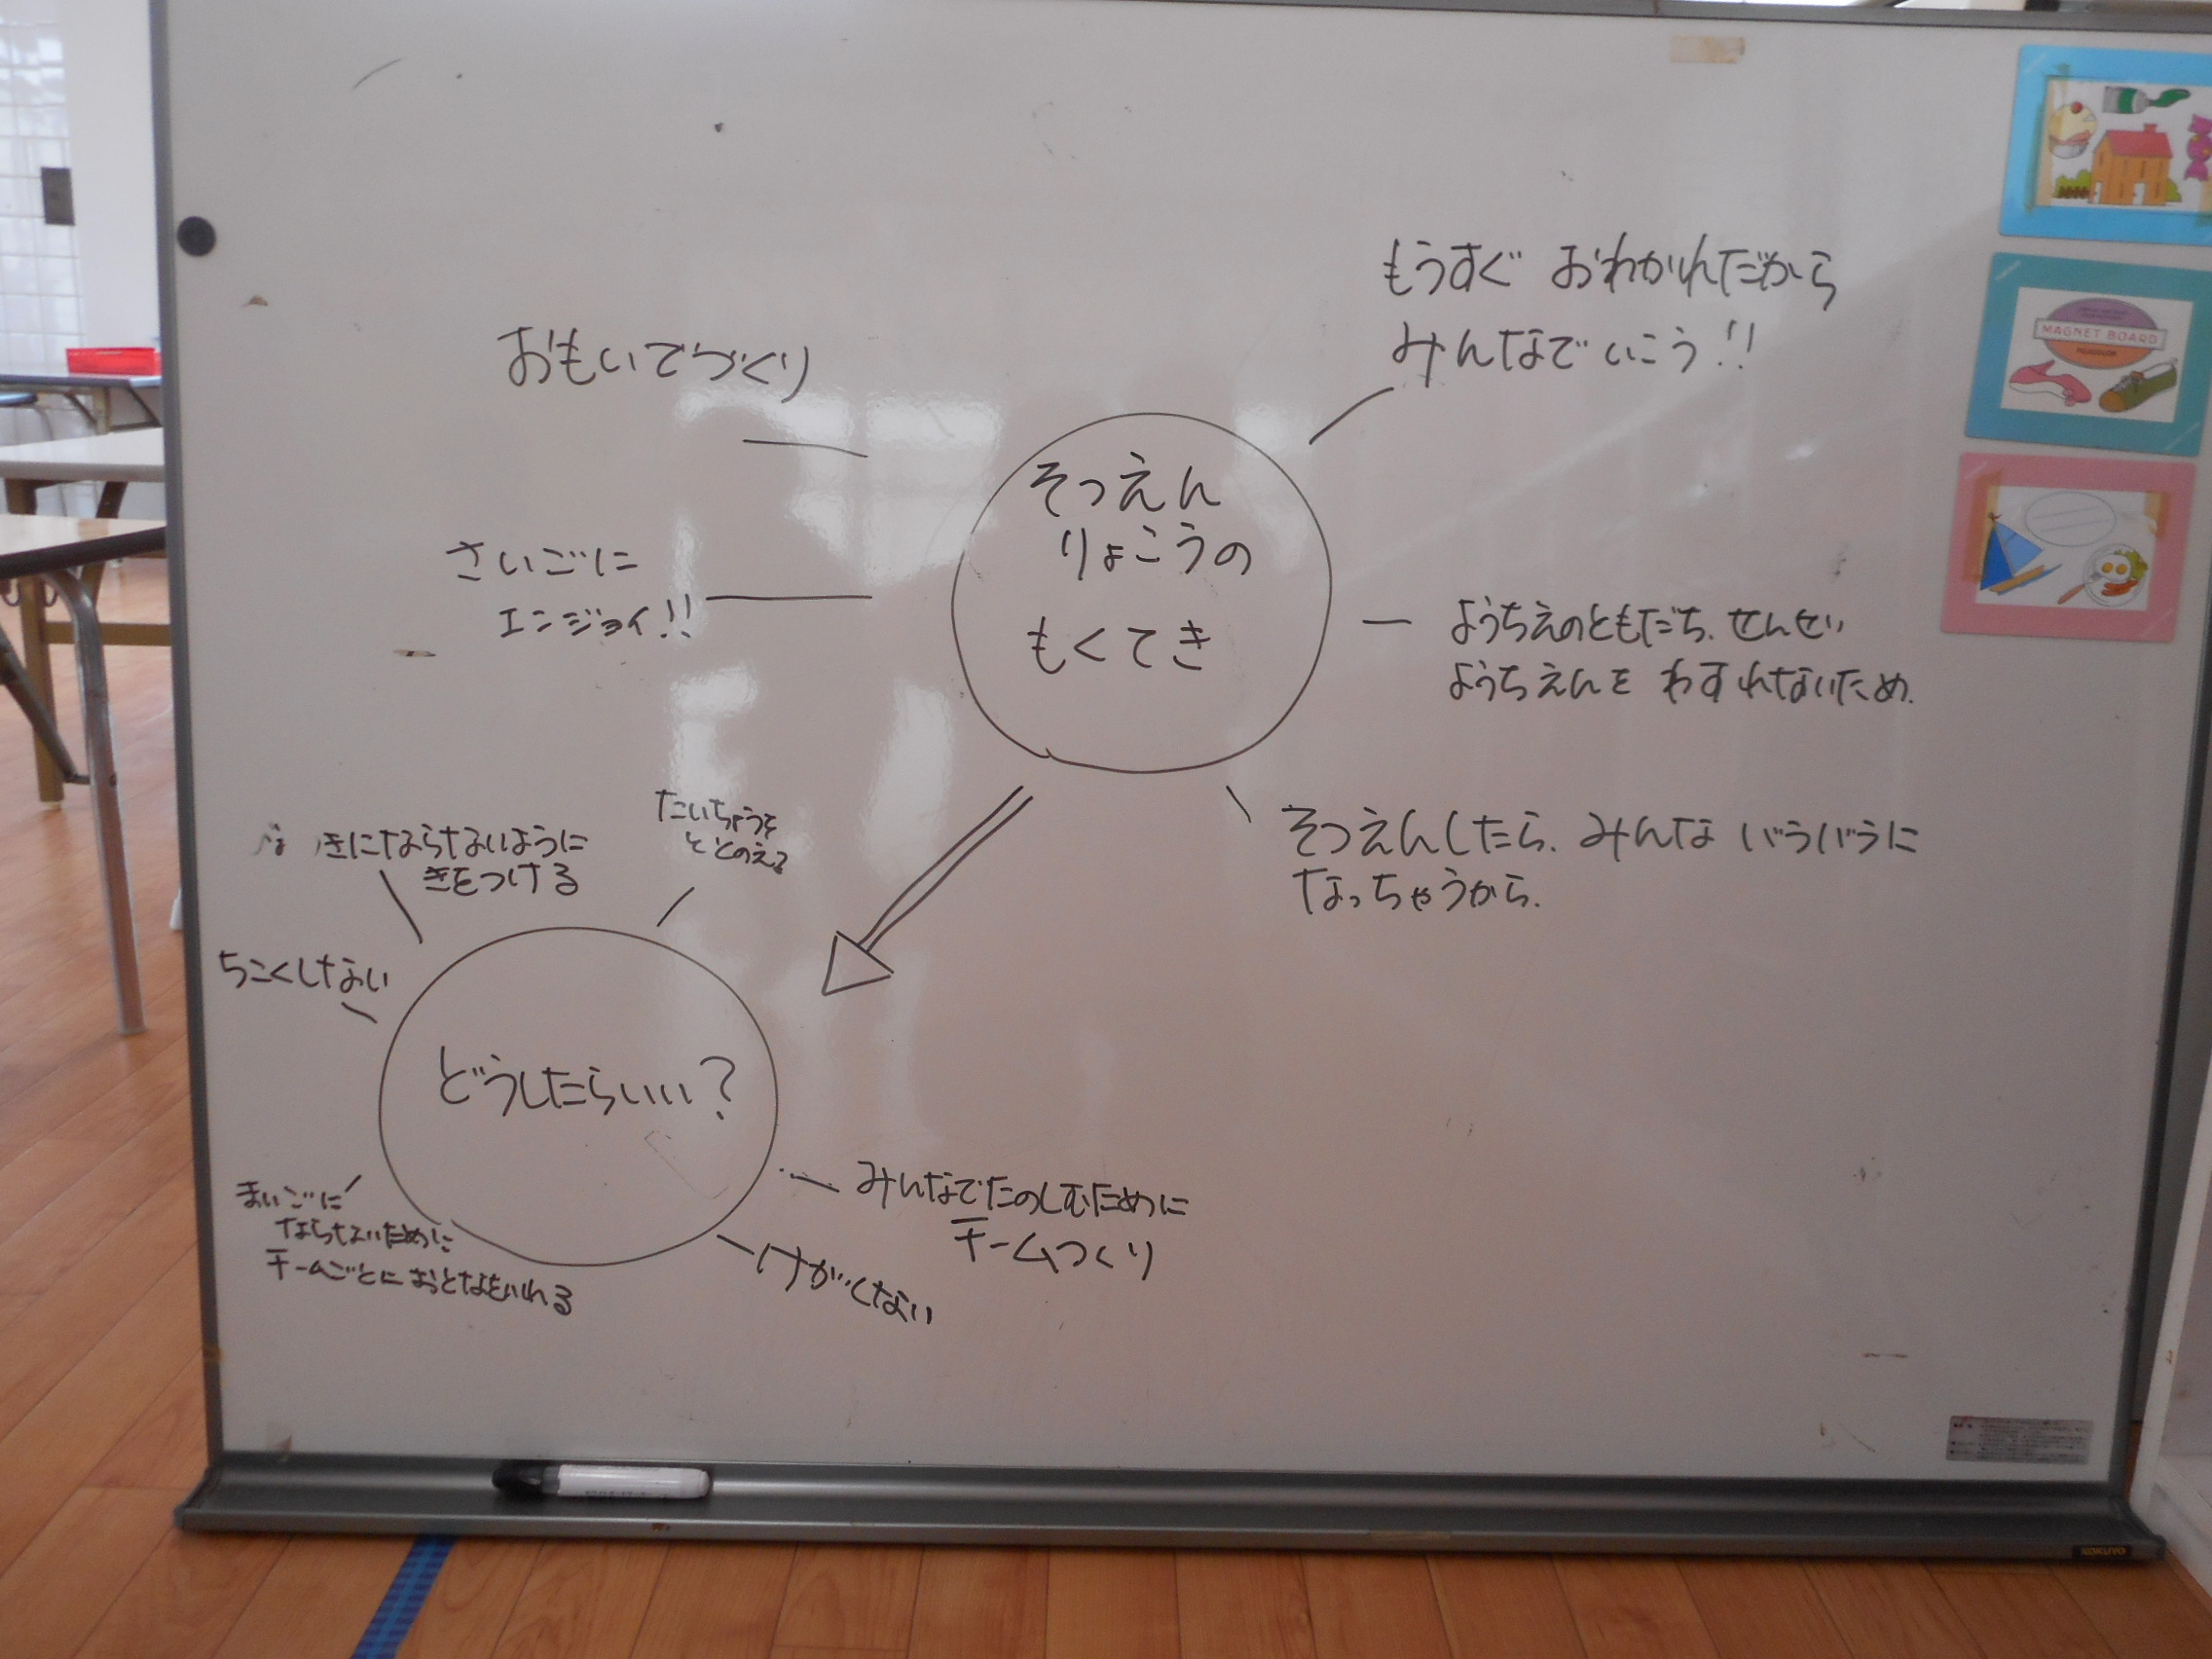 もうすぐ おわかれだから
みんなで いこう!!
おもいでづくり
そつえん
りょこうの
もくてき
さいごに
エンジョイ!!
ようちえのともだち、せんせい
ようちえんを わすれないため.
そつえんしたら、みんな バラバラに
なっちゃうから.
たいちょうを
ととのえる
きにならないように
きをつける
ちこくしない
どうしたらいい?
まいごに
ならないために
チームごとに おとなをいれる
みんなでたのしむために
チームつくり
けがしない
MAGNET BOARD
KOKUYO